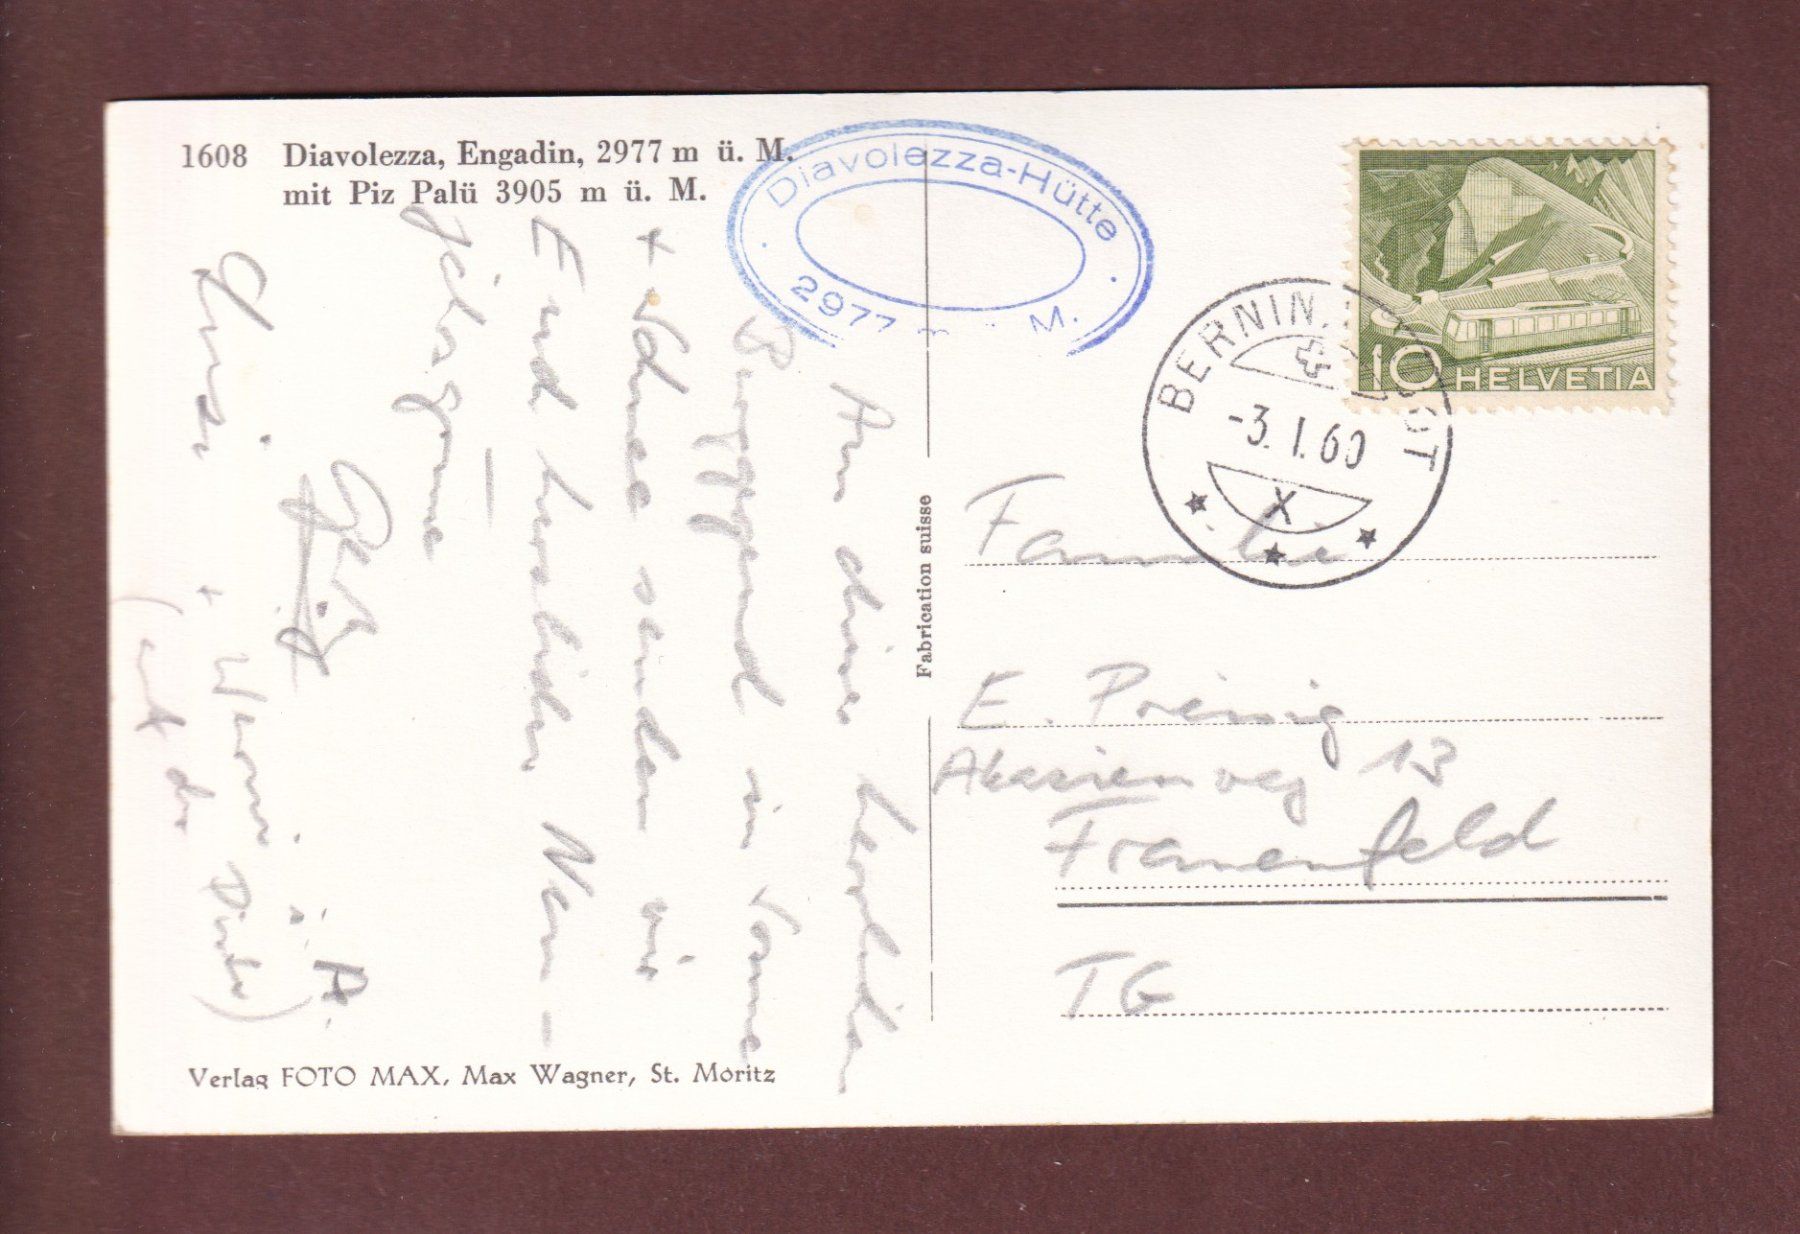 1608 Diavolezza, Engadin, 2977 m ü. M.
mit Piz Palü 3905 m ü. M.
Diavolezza-Hütte
2977 m ü. M.
10 HELVETIA
BERNINA
-3.I.60
X
Aus dieser herrlichen
Berggegend in Sonne
+ Schnee senden wir
Euch herzliche Neu-
jahrsgrüsse
Fabrication suisse
Familie
E. Preisig
Akazienweg 13
Frauenfeld
TG
Verlag FOTO MAX, Max Wagner, St. Moritz